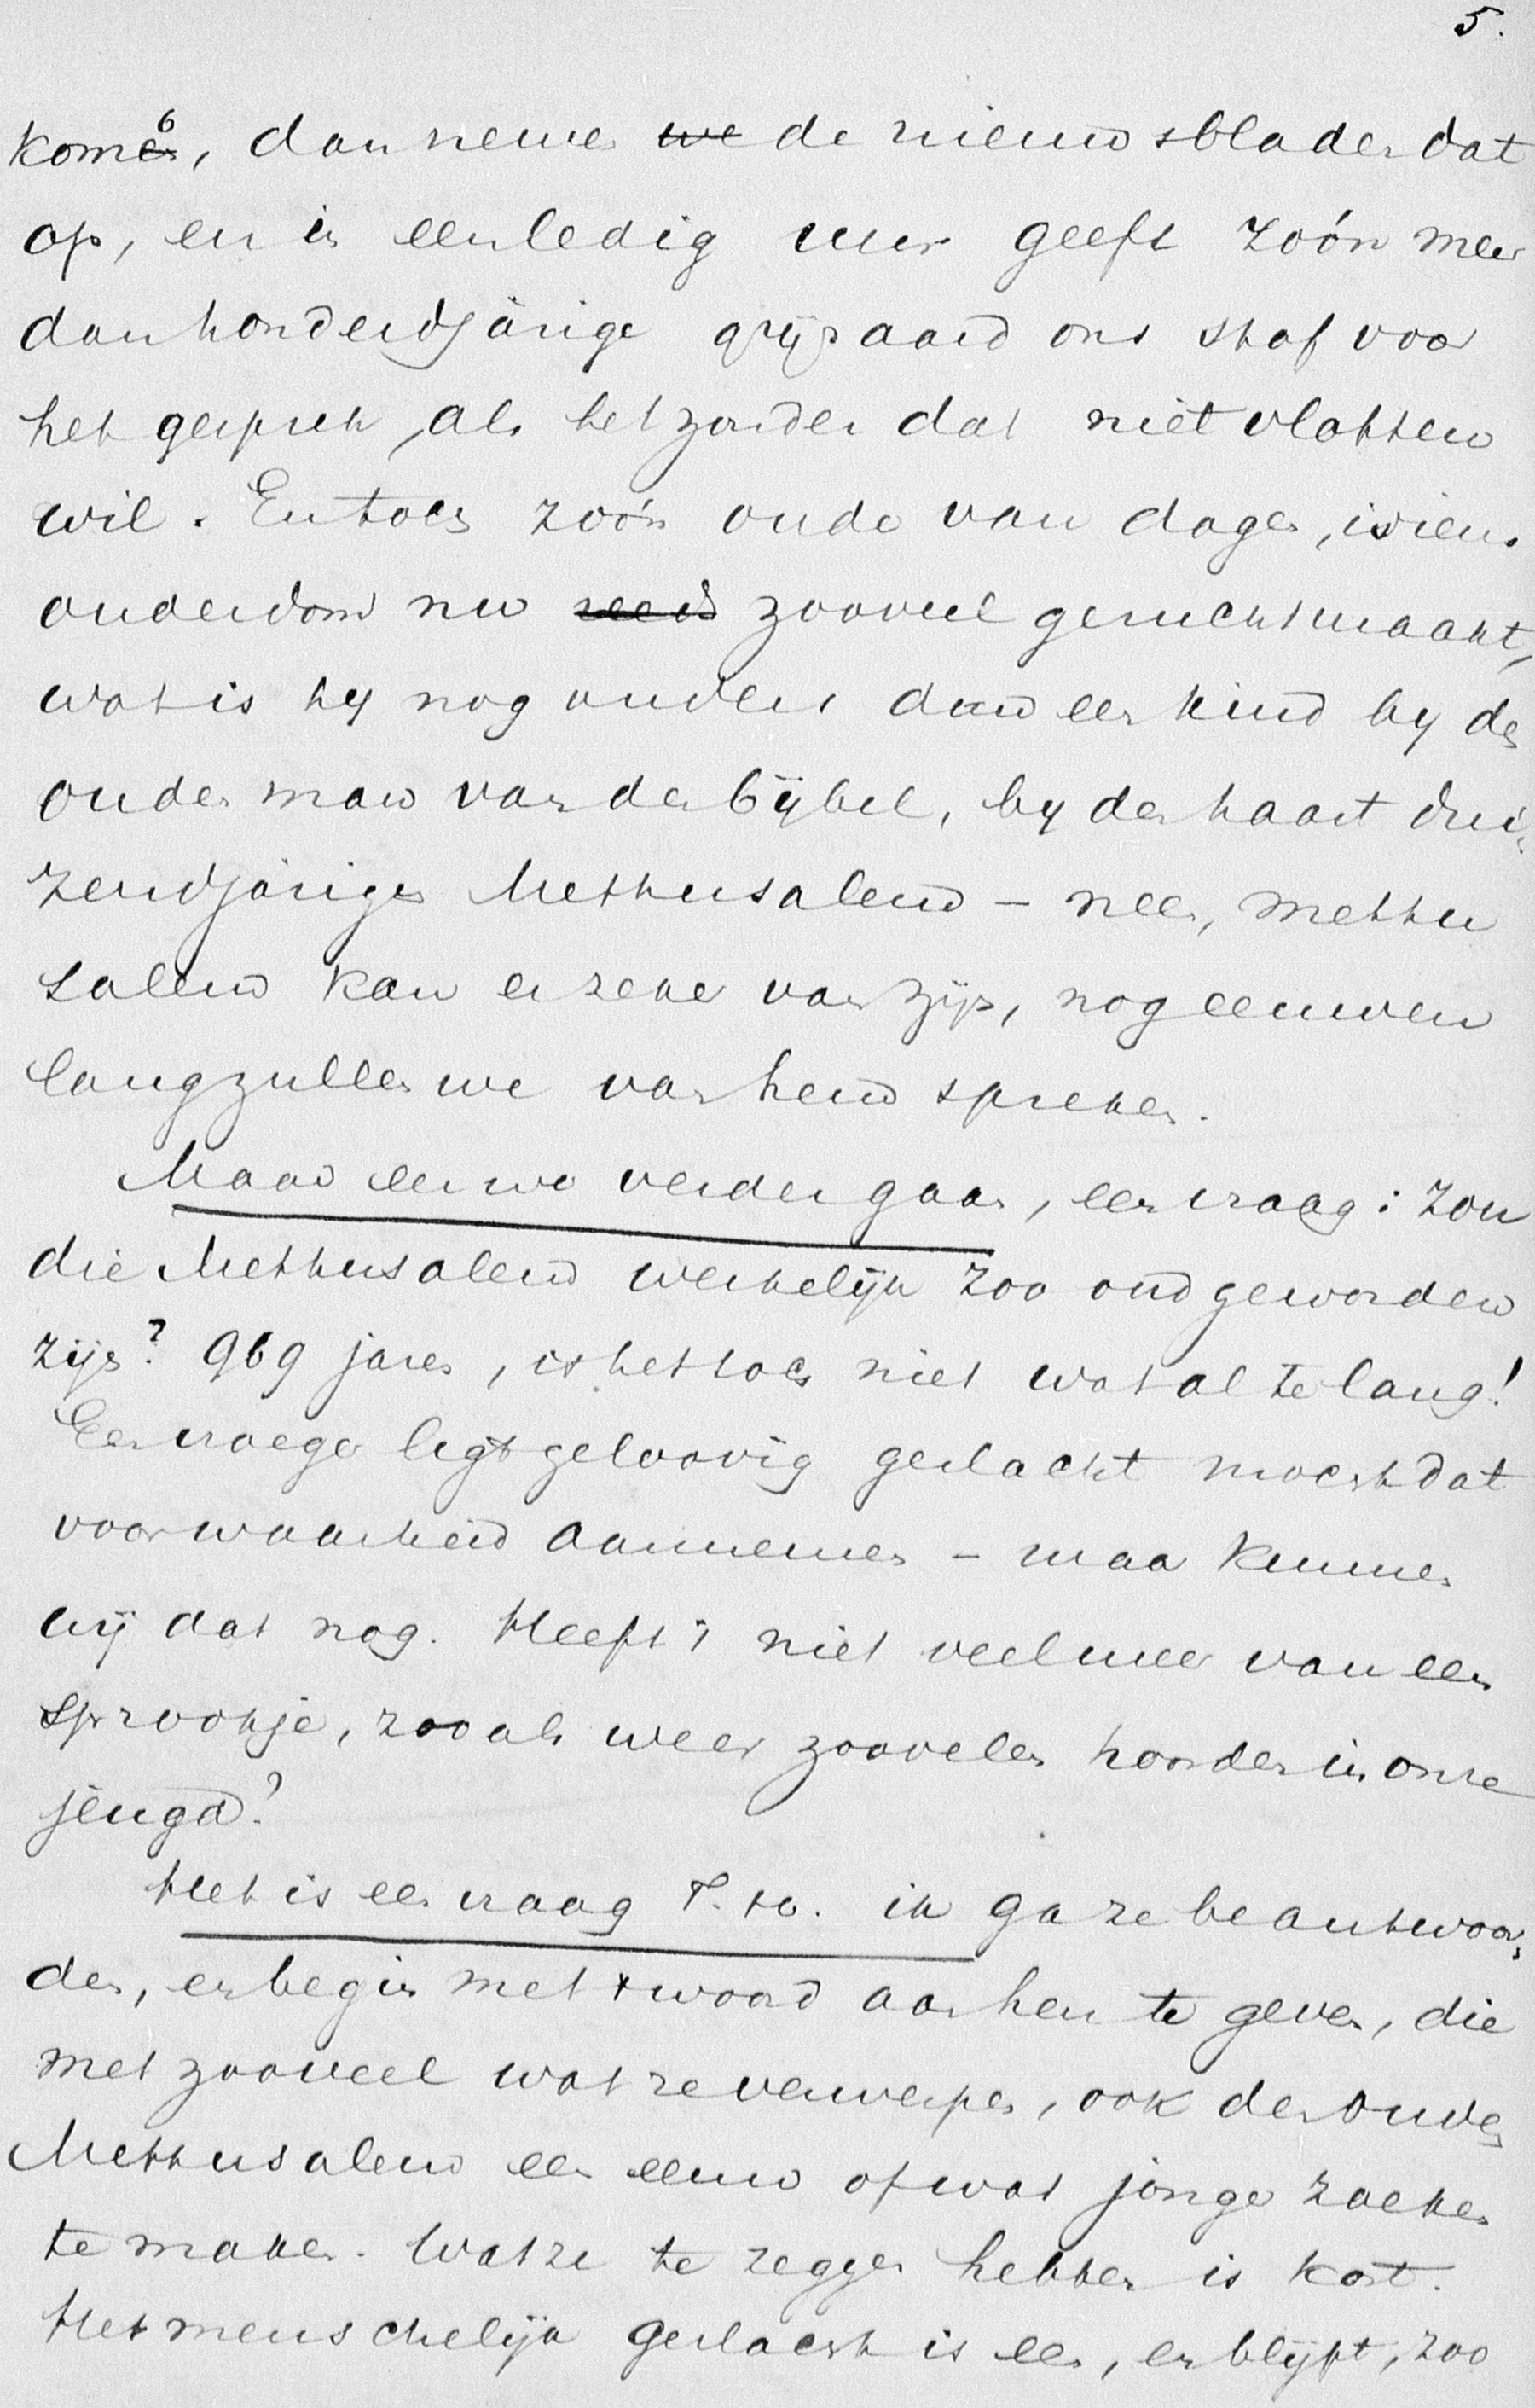 5.
komt, dan nemen we de nieuwsbladen dat
op, en in een ledig uur geeft zóón meer
dan honderdjárige grijsaard ons stof voor
het gesprek, als het zonder dat niet vlotten
wil. En toch zóón oude van dagen, wiens
ouderdom nu reeds zooveel gerucht maakt,
wat is hy nog anders dan een kind by den
ouden man van den bijbel, by den haast dui-
zendjárigen Methusalem – neen, Methu
salem kan er zeker van zijn, nog eeuwen
lang zullen we van hem spreken.
Maar eer we verder gaan, een vraag: zou
die Methusalem werkelijk zoo oud geworden
zijn? 969 jaren, is het toch niet wat al te lang!
Een vroeger ligtgeloovig geslacht mocht dat
voor waarheid aannemen – maar kunnen
wij dat nog. Heeft 't niet veel meer van een
sprookje, zooals we er zoovelen hoorden in onze
jeugd?
Het is een vraag T. H. ik ga ze beantwoor-
den, en begin met 't woord aan hen te geven, die
met zooveel wat ze verwerpen, ook den ouden
Methusalem een eeuw of wat jonger zoeken
te maken. Wat ze te zeggen hebben is kort.
Het menschelijk geslacht is een, en blijft, zoo